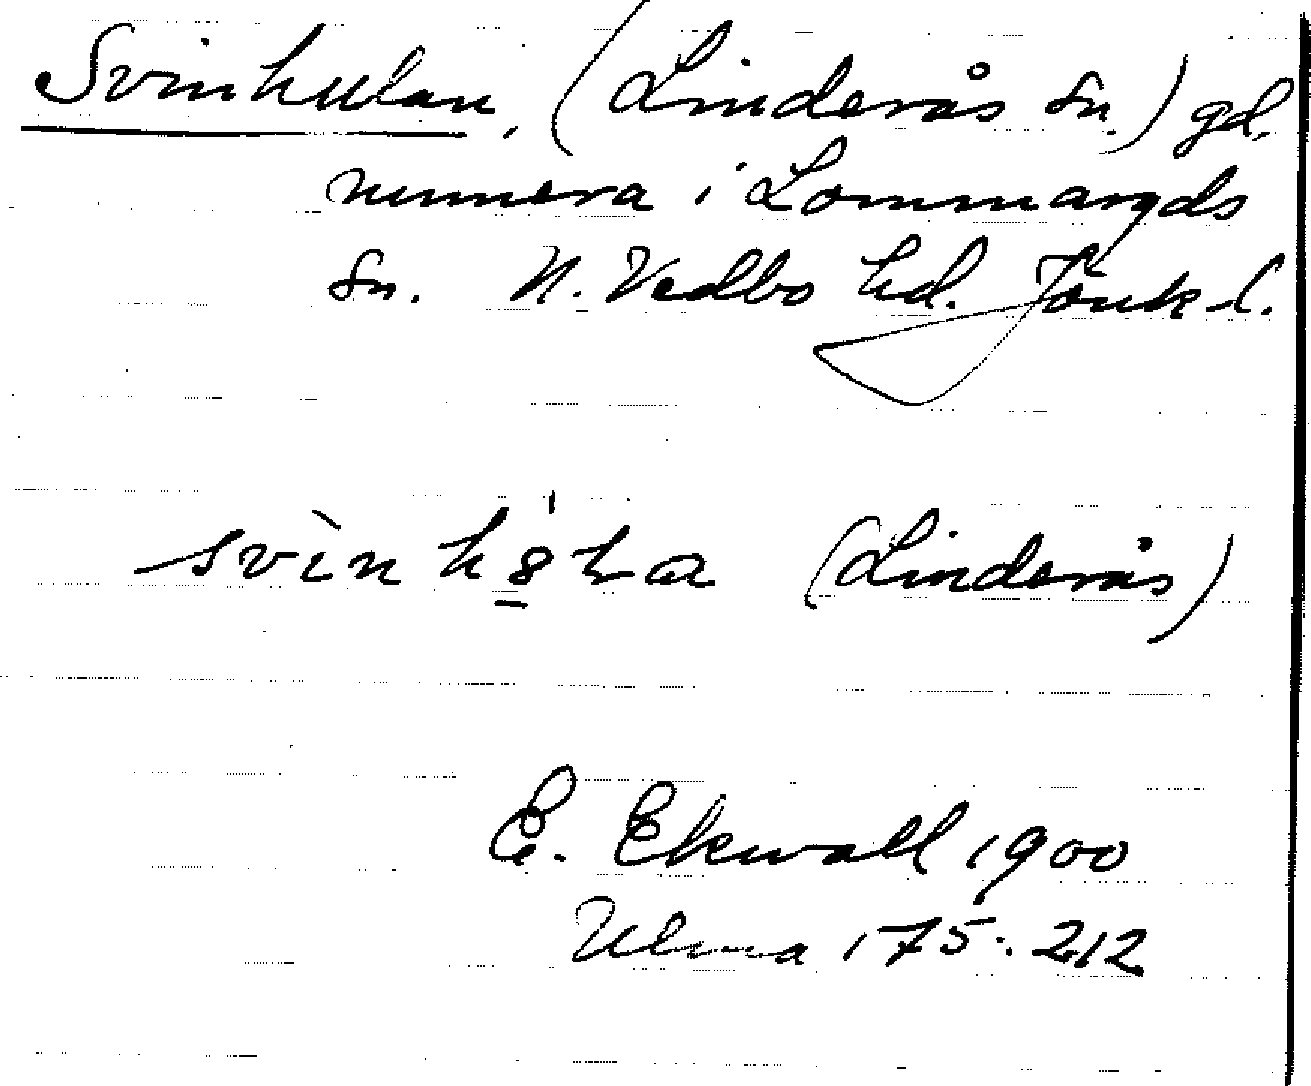 Svinhulan, (Linderås sn.) gd.
numera i Lommaryds
sn. N. Vedbo hd. Jönk. l.
(Linderås)
E. Ekwall 1900
Ulma 175:212